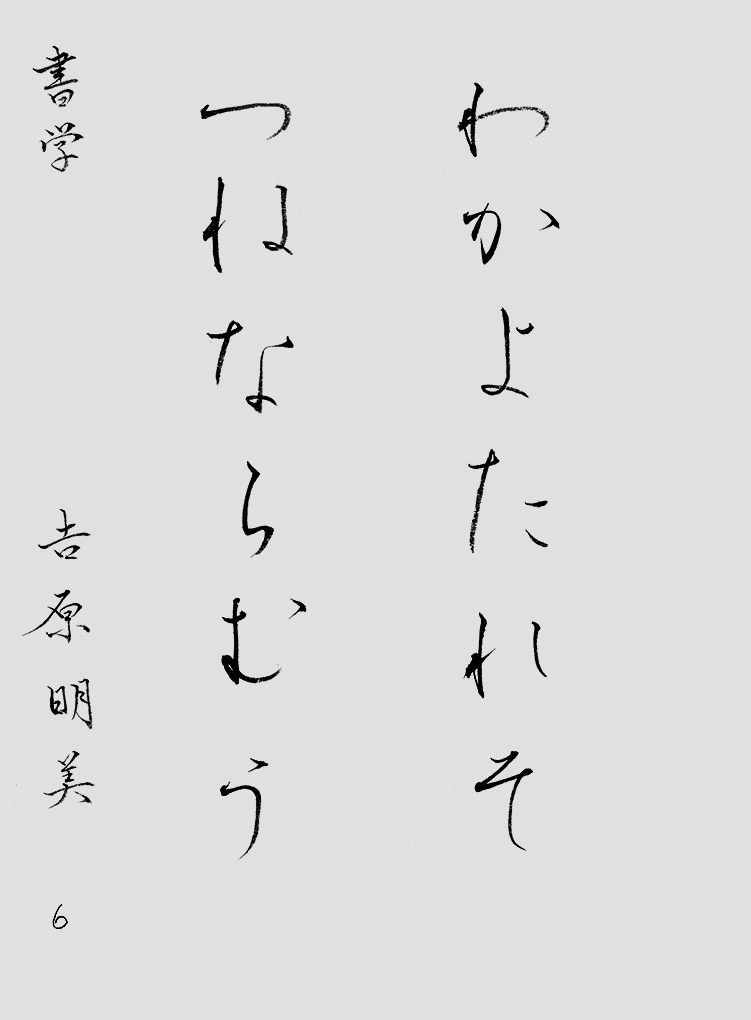 わかよたれそ
つねならむう
書学 吉原明美 6